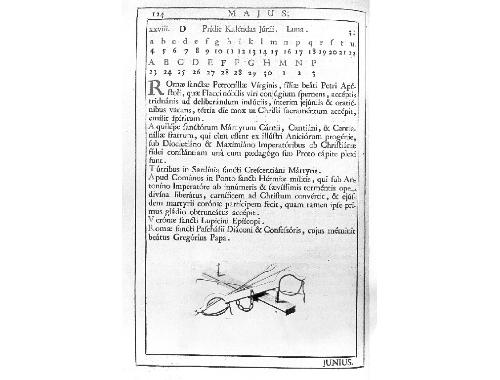 124 MAJUS.
xxviii. D Prídie Kaléndas Júnii. Luna. 31
a b c d e f g h i k l m n p q r s t u
4 5 6 7 8 9 10 11 12 13 14 15 16 17 18 19 20 21 22
A B C D E F G H M N P
23 24 25 26 27 28 29 30 1 2 3
Romæ sanctæ Petroníllæ Vírginis, fíliæ beáti Petri Apó-
stoli, quæ Flacci nóbilis viri conjúgium spernens, accéptis
triduánis ad deliberándum indúciis, ínterim jejúniis & oratió-
nibus vacans, tértia die mox ut Christi sacraméntum accépit,
emísit spíritum.
Aquiléjæ sanctórum Mártyrum Cántii, Cantiáni, & Canti-
níllæ fratrum, qui cùm essent ex illústri Aniciórum progénie,
sub Diocletiáno & Maximiáno Imperatóribus ob Christiánæ
fídei constántiam unà cum pædagógo suo Proto cápite plexi
sunt.
Túrribus in Sardínia sancti Crescentiáni Mártyris.
Apud Comános in Ponto sancti Hérmiæ mílitis, qui sub An-
toníno Imperatóre ab innúmeris & sævíssimis torméntis ope
divína liberátus, carníficem ad Christum convértit, & ejús-
dem martyrii corónæ partícipem fecit, quam tamen ipse pri-
mus gládio obtruncátus accépit.
Verónæ sancti Lupicíni Epíscopi.
Romæ sancti Paschásii Diáconi & Confessóris, cujus méminit
beátus Gregórius Papa.
L L
JUNIUS.